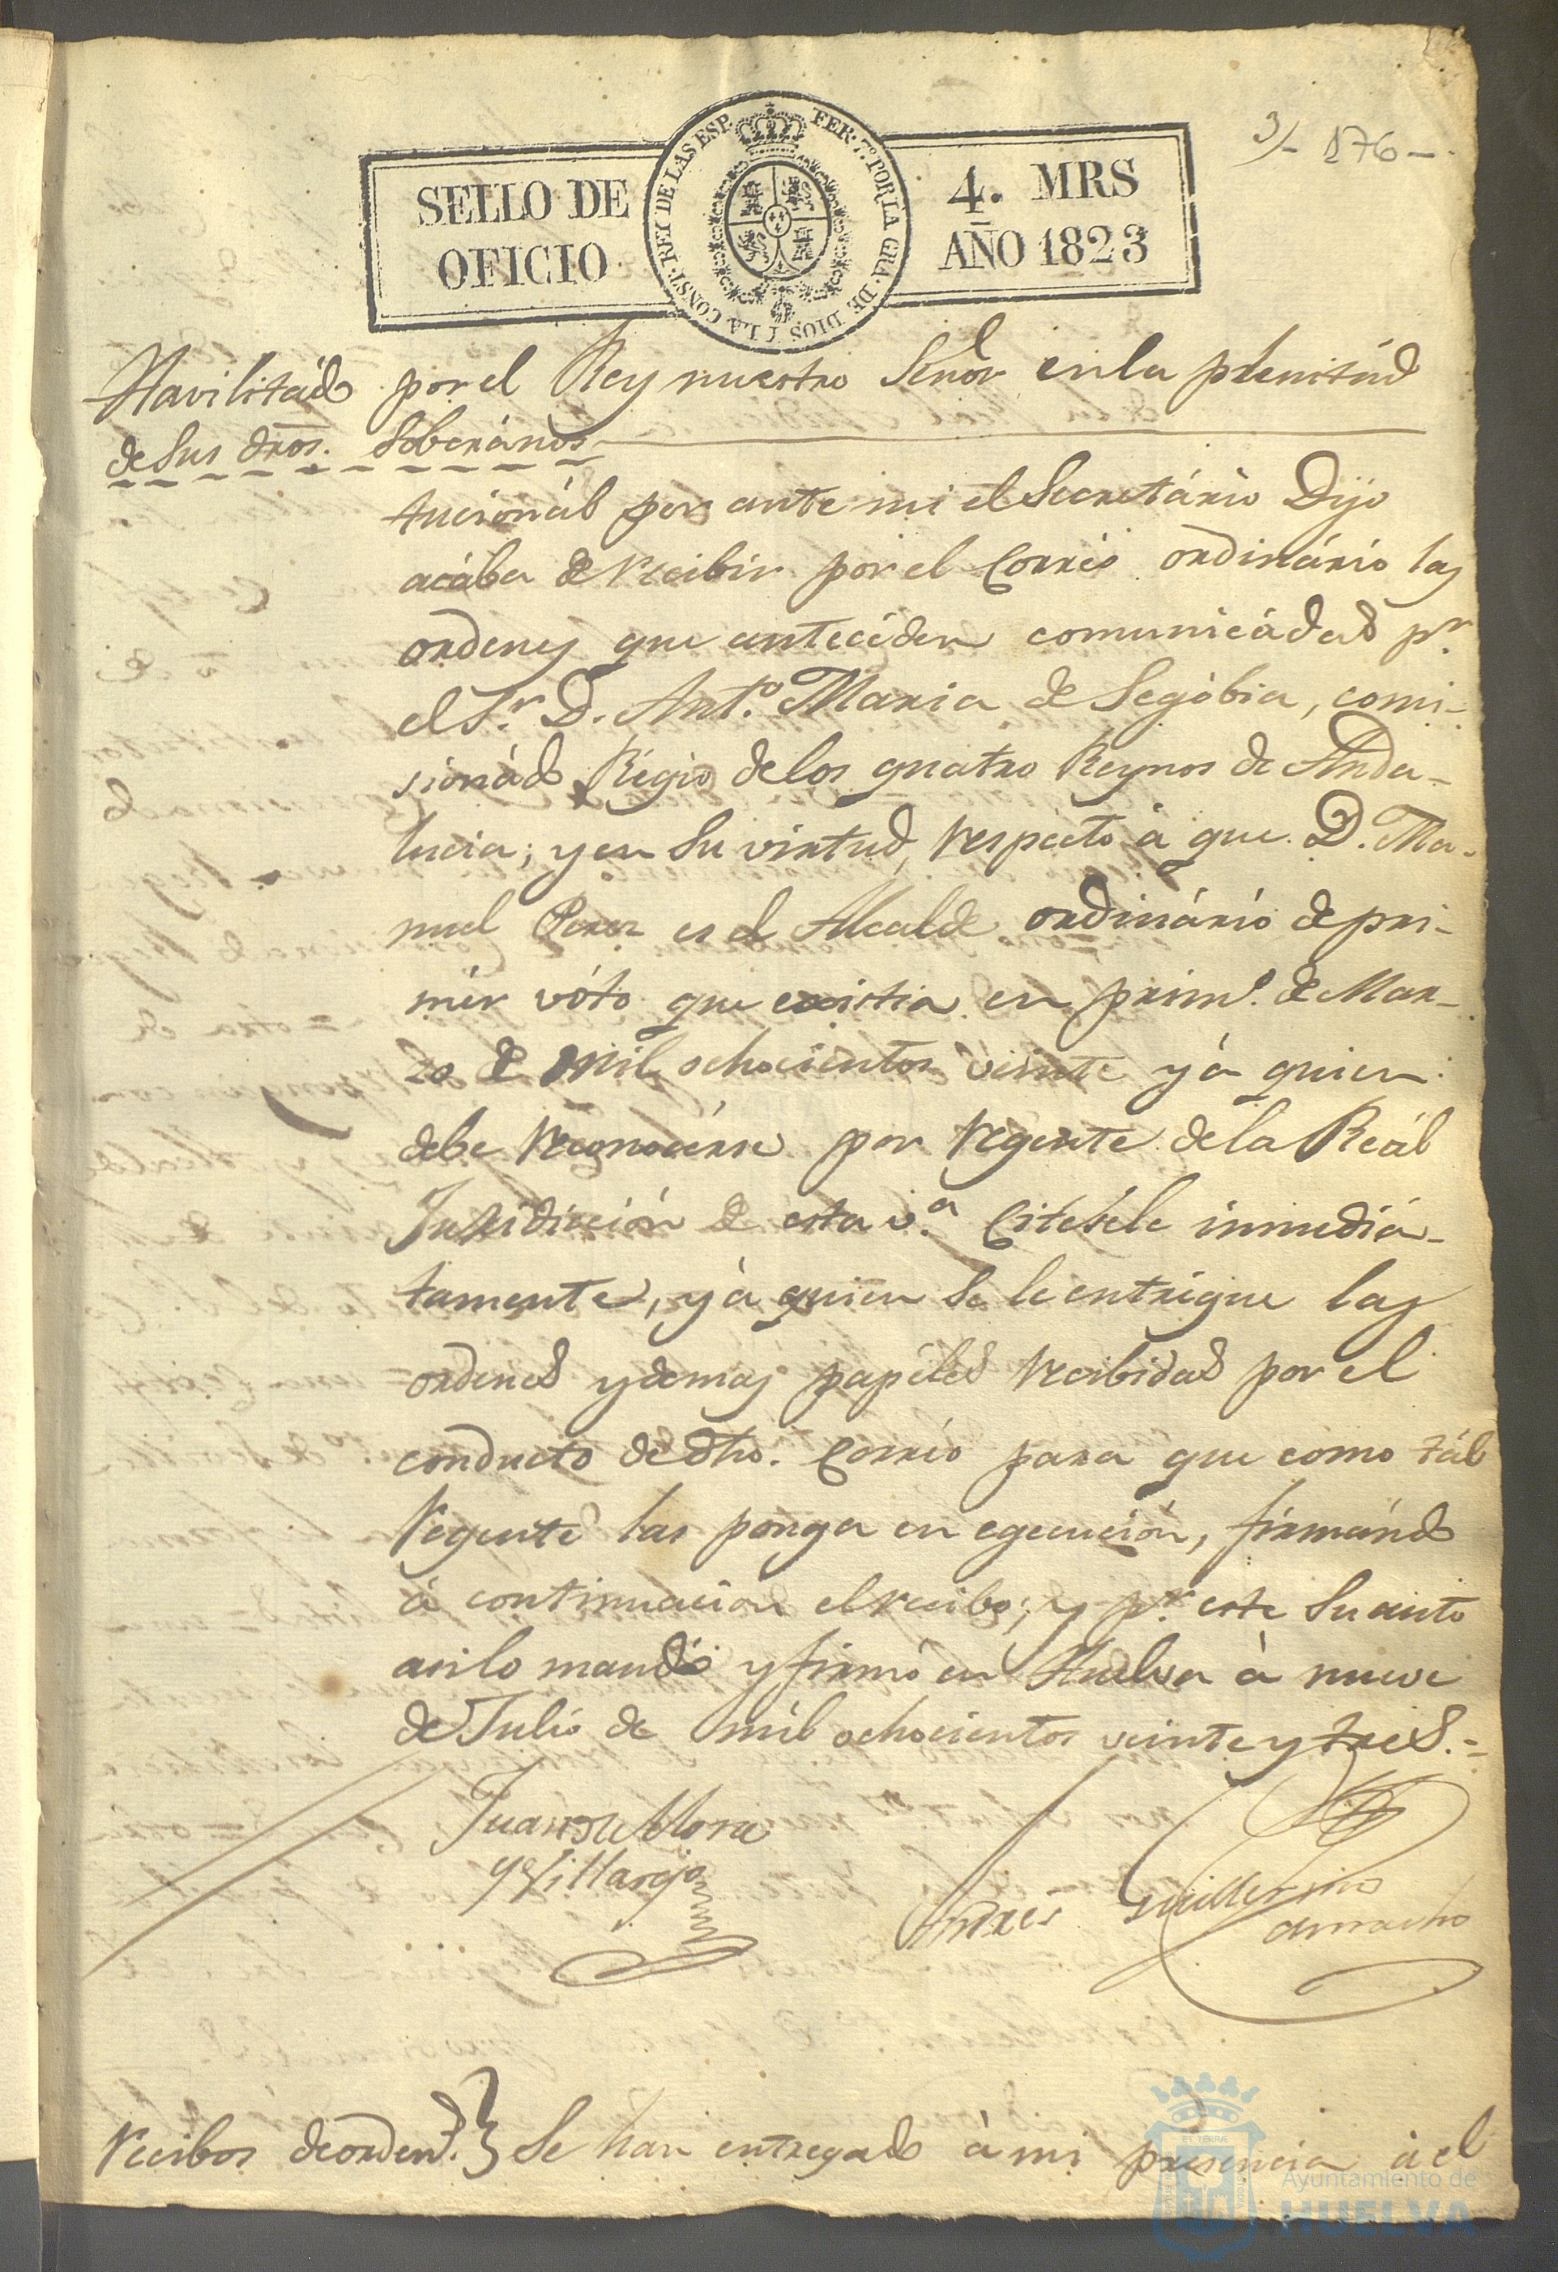 3/- 176-
SELLO DE OFICIO
FER. 7.º POR LA GRA. DE DIOS I LA CONST. REY DE LAS ESP.
4. MRS
AÑO 1823
Havilitádo por el Rey nuestro Señor en la plenitúd
de sus dros. Soberános
tucionál por ante mi el Secretário Dijo
acába de recibir por el Corréo ordinário las
ordenes que antecéden comunicádas pr.
el Sr. D. Antº. Maria de Segóbia, comi-
sionádo Régio de los quatro Reynos de Anda-
lucia; y en su virtud, respecto à que D. Ma-
nuel Perez es el Alcalde ordinário de pri-
mér vóto que existia en primº. de Mar-
zo de mil ochocientos veinte y à quien
debe reconocérse por regente de la Reál
Jurisdicción de esta v.ª Citesele inmediá-
tamente, y à quien se le entrégue las
ordenes y demas papéles recibidas por el
conducto de dho. Corréo para que como tál
regente las ponga en egecución, firmándo
à continuacion el recibo; y pr. este su auto
asi lo mandó y firmó en Huelva à nueve
de Julio de mil ochocientos veinte y tres.=
Juan de Mora
y Villarejo
Andrés Guillermo
Camacho
Recibos de orden.s } Se han entregado à mi presencia à el
Ayuntamiento de
HUELVA